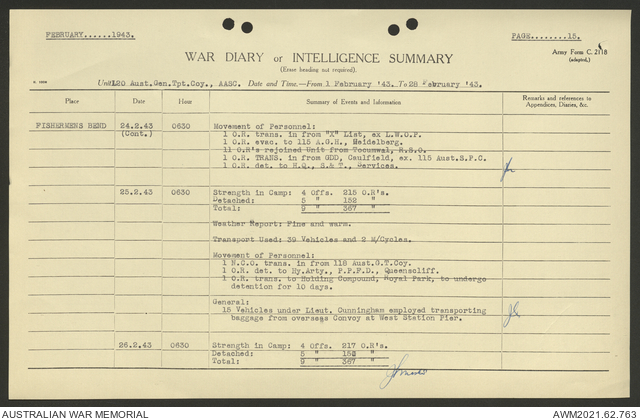 FEBRUARY......1943.
PAGE........15.
WAR DIARY or INTELLIGENCE SUMMARY
(Erase heading not required).
Army Form C. 2118
(adapted.)
Unit 120 Aust.Gen.Tpt.Coy., AASC. Date and Time.—From 1 February '43. To 28 February '43.
Place Date Hour Summary of Events and Information Remarks and references to
Appendices, Diaries, &c.
FISHERMENS BEND 24.2.43 0630 Movement of Personnel:
(Cont.) 1 O.R. trans. in from "X" List, ex L.W.O.P.
1 O.R. evac. to 115 A.G.H., Heidelberg.
11 O.R's rejoined Unit from Tocumwal, R.S.O.
1 O.R. TRANS. in from GDD, Caulfield, ex. 115 Aust.S.P.C.
1 O.R. det. to H.Q., S.& T., Services.
25.2.43 0630 Strength in Camp: 4 Offs. 215 O.R's.
Detached: 5 " 152 "
Total: 9 " 367 "
Weather Report: Fine and warm.
Transport Used: 39 Vehicles and 2 M/Cycles.
Movement of Personnel:
1 N.C.O. trans. in from 118 Aust.G.T.Coy.
1 O.R. det. to Hy.Arty., P.P.F.D., Queenscliff.
1 O.R. trans. to Holding Compound, Royal Park, to undergo
detention for 10 days.
General:
15 Vehicles under Lieut. Cunningham employed transporting
baggage from overseas Convoy at West Station Pier.
26.2.43 0630 Strength in Camp: 4 Offs. 217 O.R's.
Detached: 5 " 150 "
Total: 9 " 367 "
AUSTRALIAN WAR MEMORIAL
AWM2021.62.763